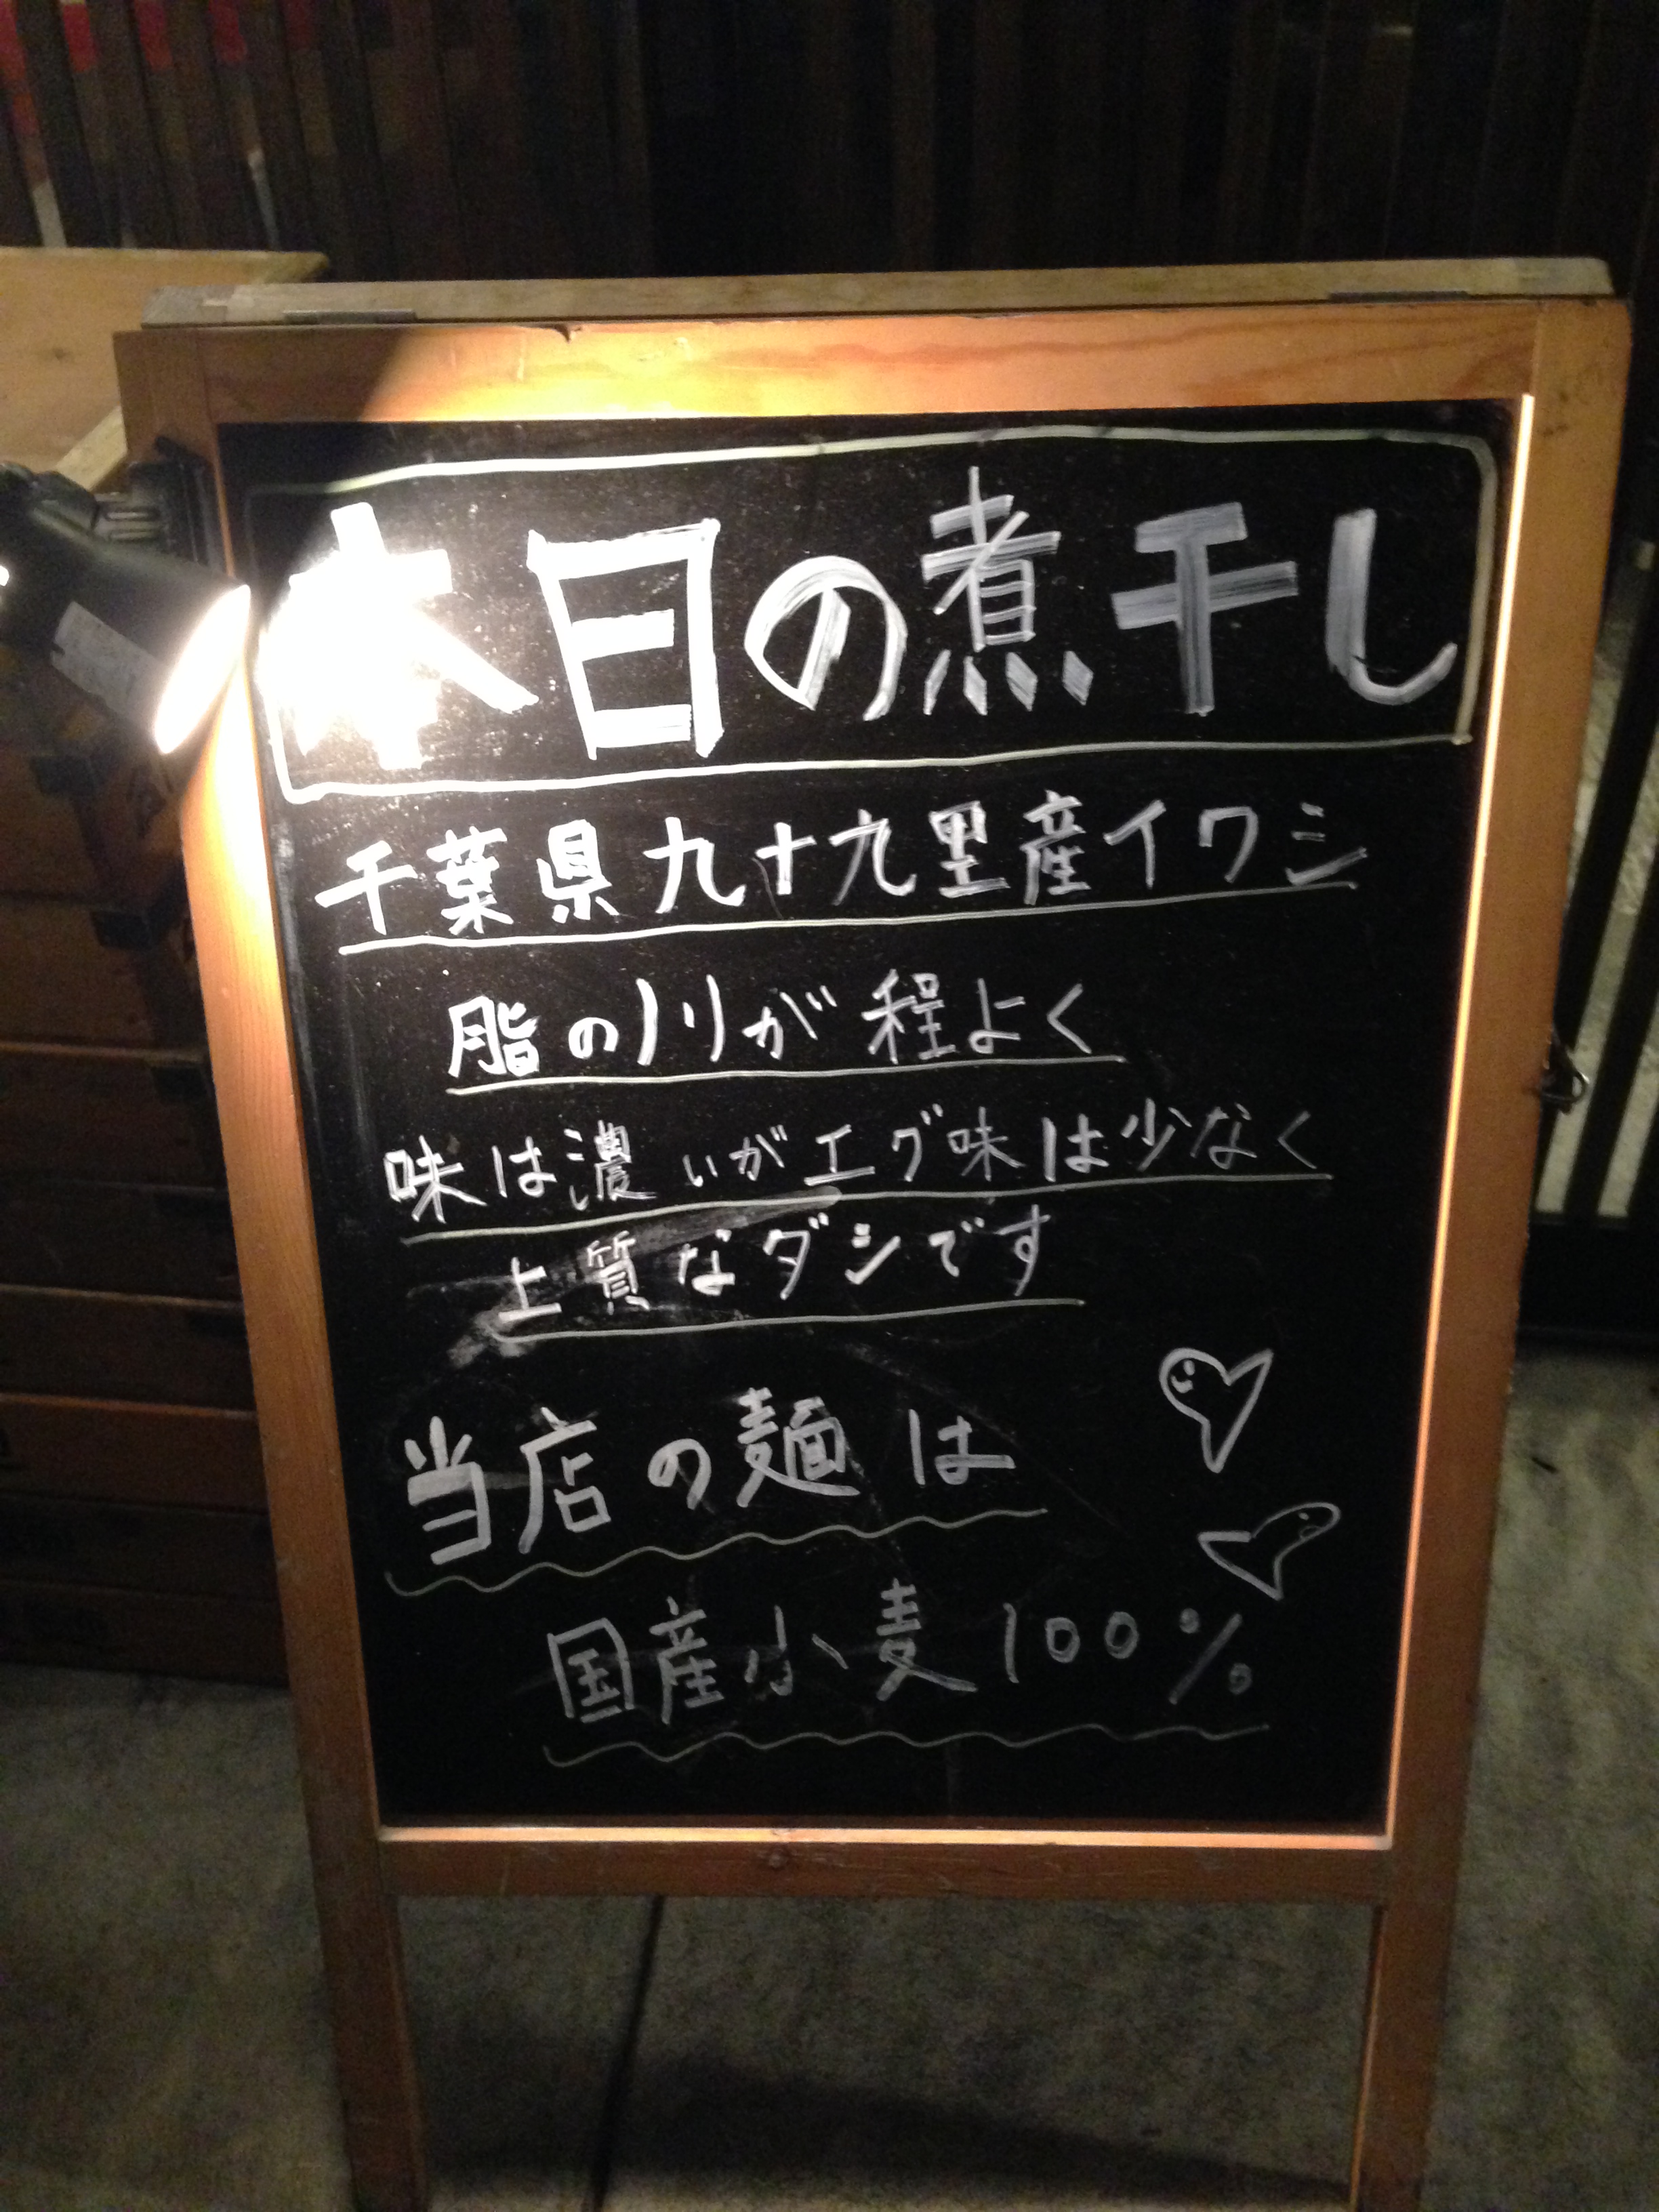 本日の煮干し
千葉県九十九里産イワシ
脂のノリが程よく
味は濃いがエグ味は少なく
上質なダシです
当店の麺は
国産小麦100%